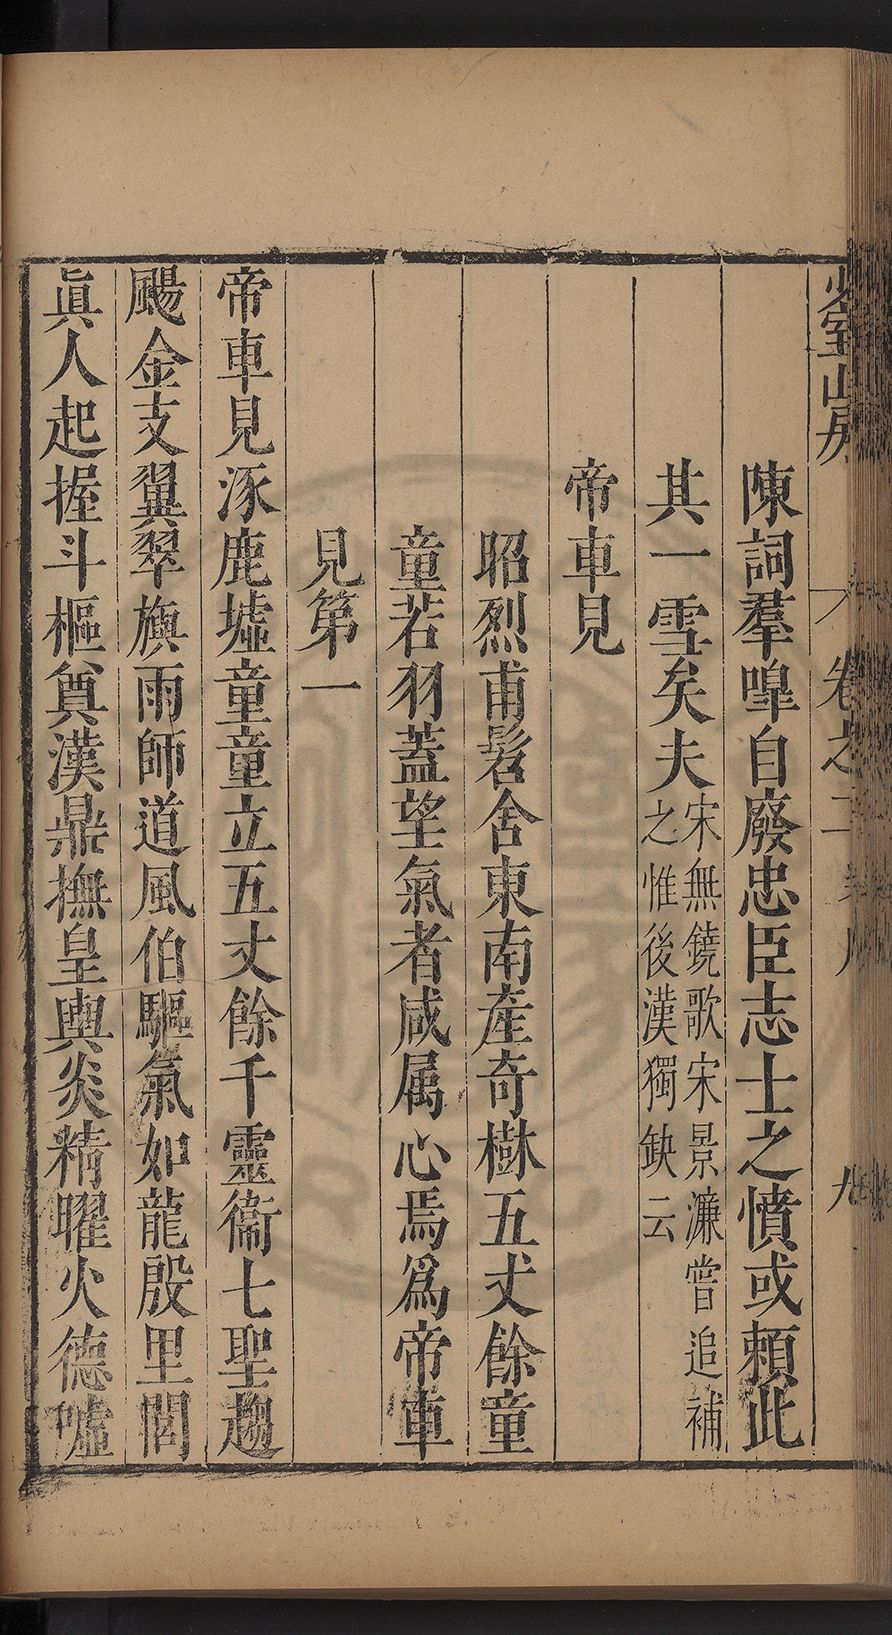 少室山房
卷之二
九
陳詞羣嘷自廢忠臣志士之憤或頼此
其一雪矣夫宋無鐃歌宋景濂嘗追補
之惟後漢獨缺云
帝車見
昭烈甫髫舍東南產奇樹五丈餘童
童若羽蓋望氣者咸属心焉爲帝車
見第一
帝車見涿鹿墟童童立五丈餘千靈衞七聖趨
颺金支翼翠旗雨師道風伯驅氣如龍殷里閭
眞人起握斗樞奠漢鼎撫皇輿炎精曜火德噓